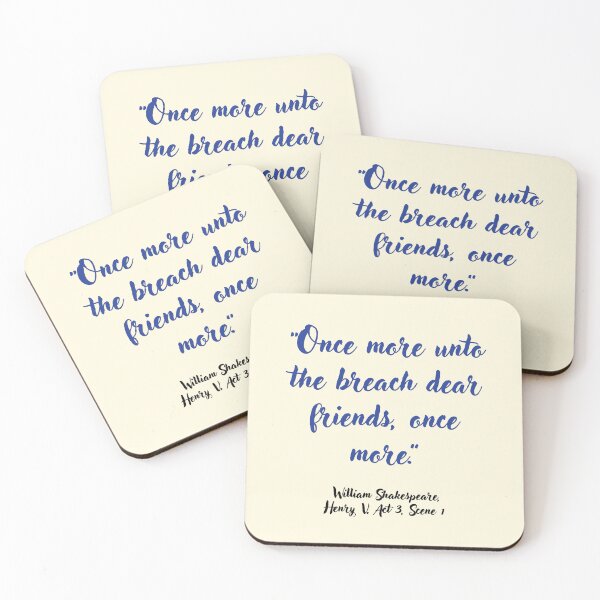 "Once more unto
the breach dear
friends, once
"Once more unto
the breach dear
friends, once
more."
"Once more unto
the breach dear
friends, once
more."
William Shakes
Henry, V. Act 3
"Once more unto
the breach dear
friends, once
more."
William Shakespeare,
Henry, V. Act 3, Scene 1